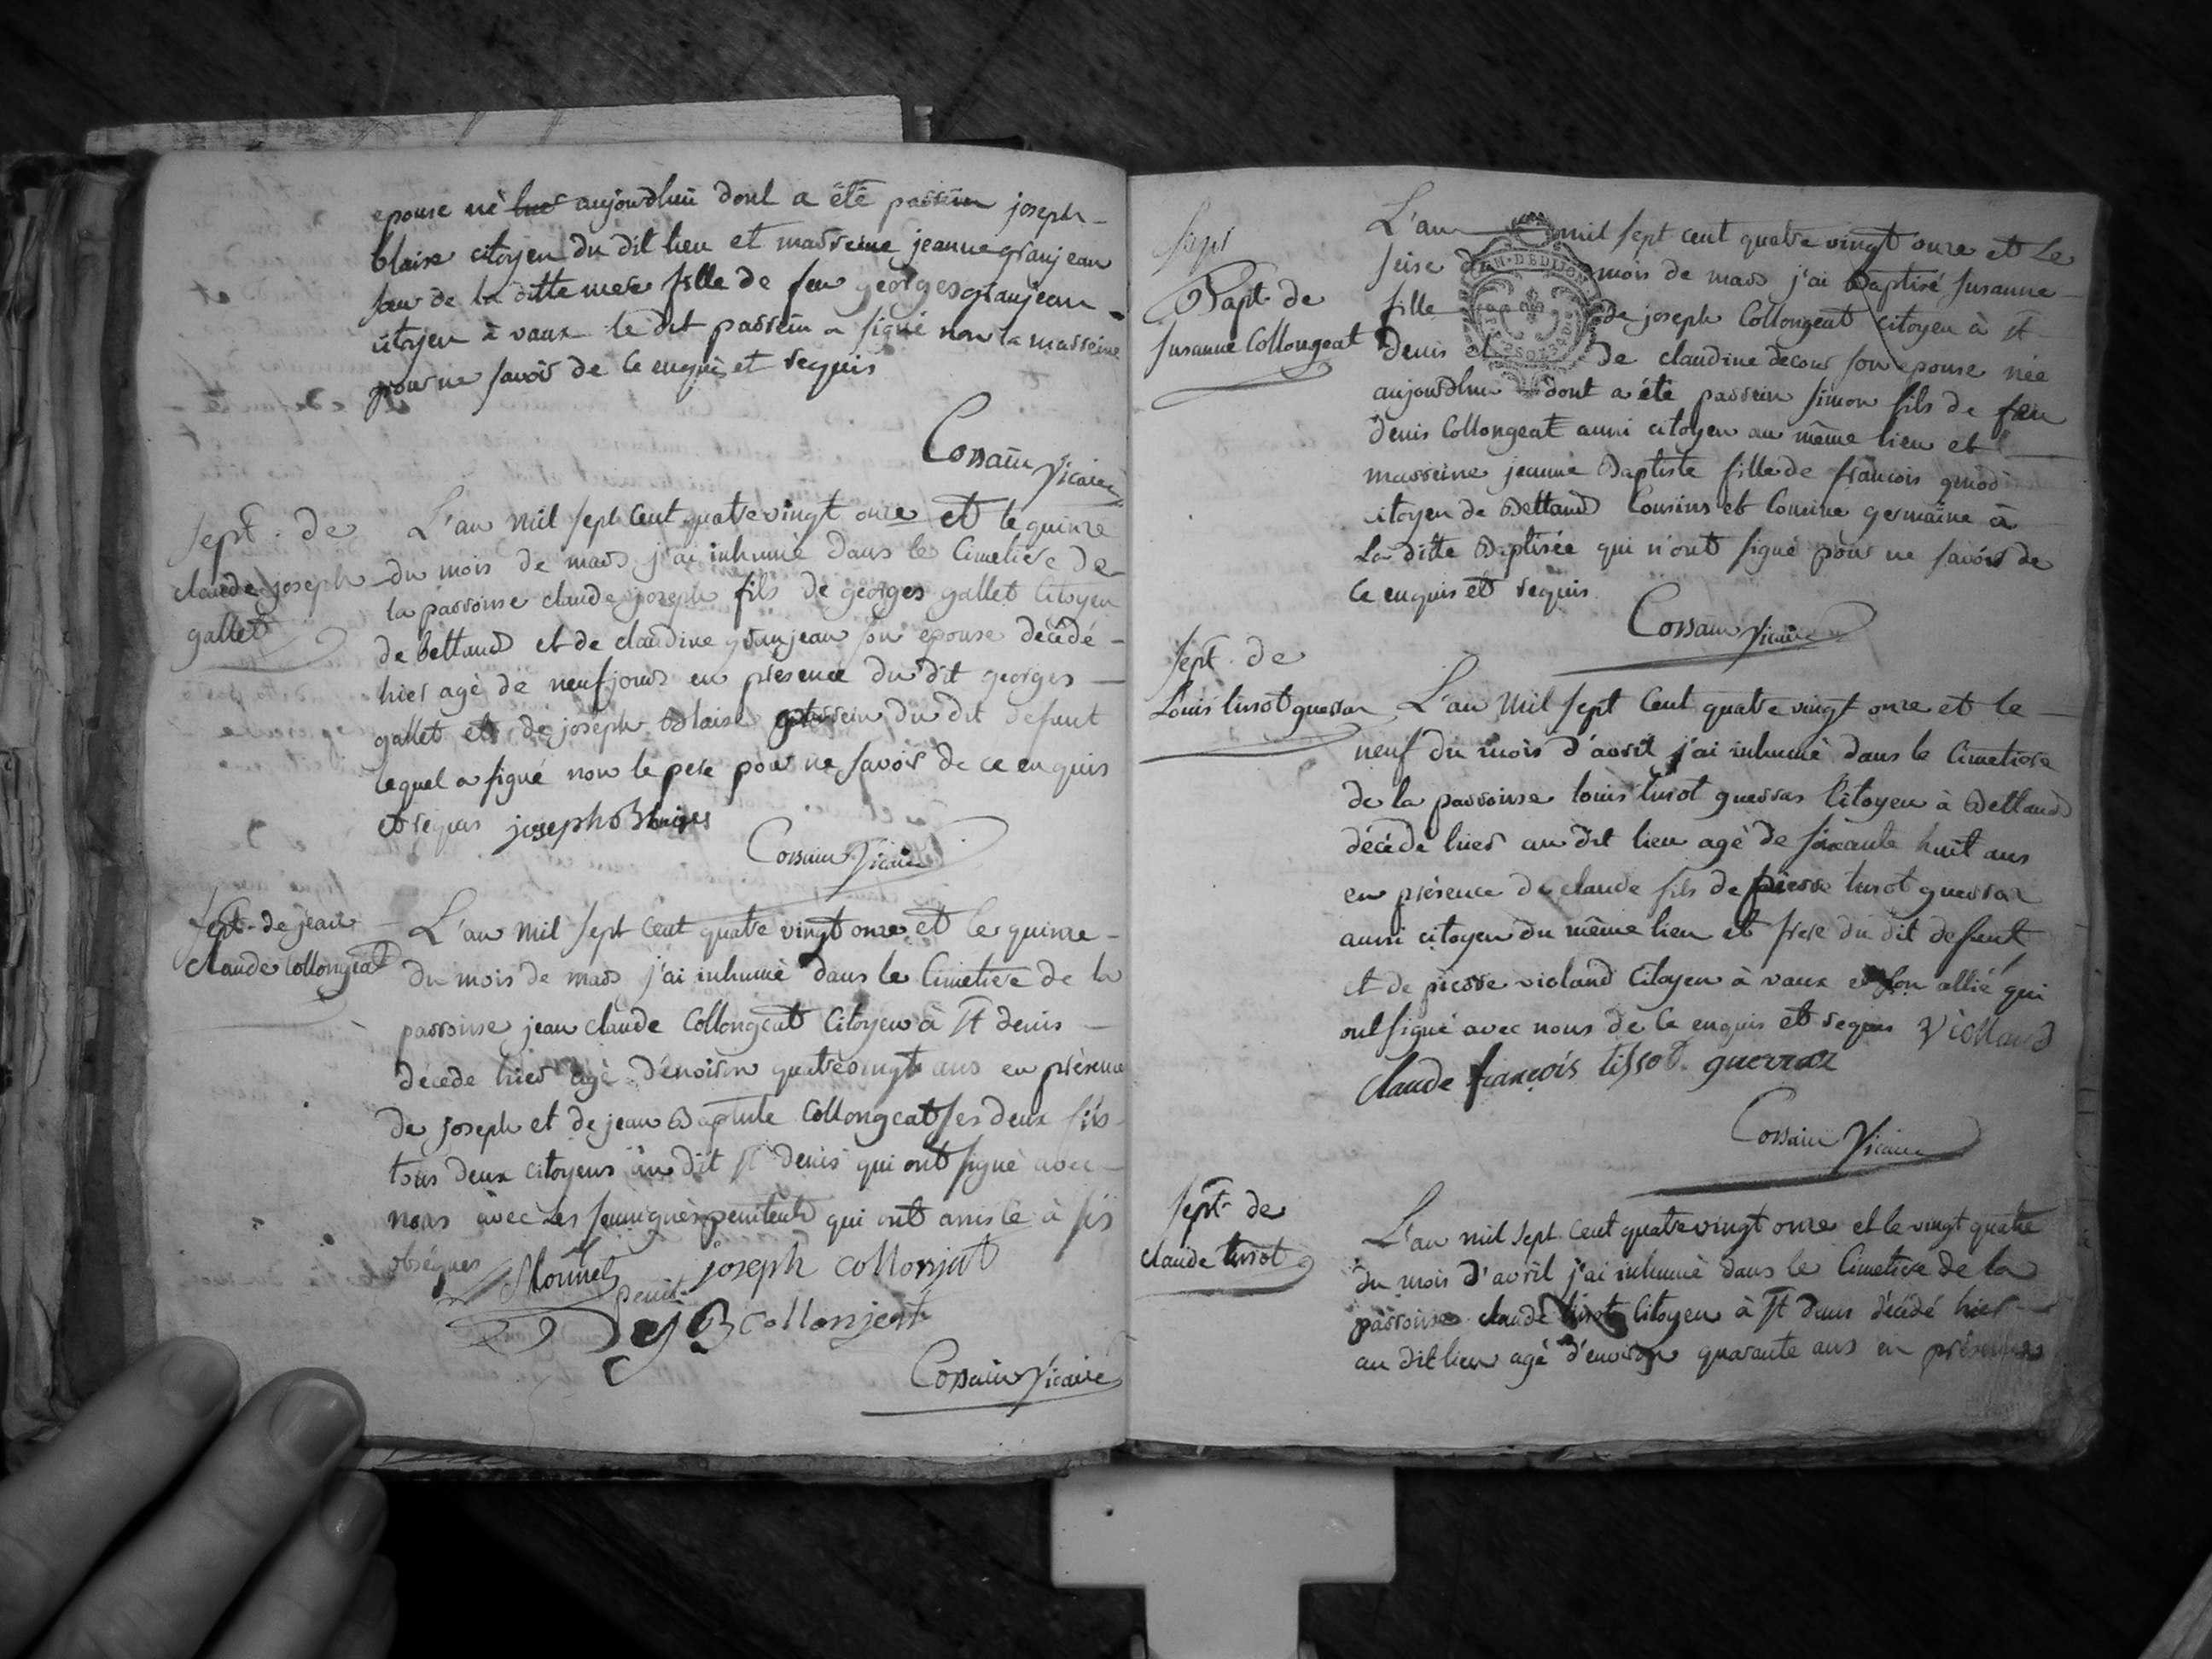 epouse né hier aujourdhui dont a été parrein joseph
blaise citoyen du dit lieu et marreine jeanne granjean
sœur de la ditte mere fille de feu georges granjean
citoyen à vaux le dit parrein a signé non la marreine
pour ne savoir de ce enquis et requis
Cossain Vicaire
sept. de
claude joseph
gallet
L'an mil sept cent quatre vingt onze et le quinze
du mois de mars j'ai inhumé dans le Cimetiere de
la parroisse claude joseph fils de georges gallet Citoyen
de bettand et de claudine granjean son epouse décédé
hier agé de neuf jours en présence du dit georges
gallet et de joseph Blaise parrein du dit defunt
lequel a signé non le pere pour ne savoir de ce enquis
et requis joseph Blaises
Cossain Vicaire
sept. de jean
claude Collongeat
L'an mil sept cent quatre vingt onze et le quinze
du mois de mars j'ai inhumé dans le Cimetiere de la
parroisse jean claude Collongeat Citoyen à St denis
décédé hier agé d'environ quatre vingt ans en présence
de joseph et de jean Baptiste Collongeat ses deux fils
tous deux citoyens au dit St denis qui ont signé avec
nous avec les penitents qui ont assisté à ses
obséques
Monnet penit. joseph collonjat
J B collonjeat
Cossain Vicaire
sept
Bapt. de
susanne Collongeat
L'an mil sept cent quatre vingt onze et le
seise du mois de mars j'ai Baptisé susanne
fille de joseph Collongeat citoyen à St
denis et de claudine decour son epouse née
aujourdhui dont a été parrein simon fils de feu
denis Collongeat aussi citoyen au même lieu et
marreine jeanne Baptiste fille de francois
citoyen de Bettand Cousins et Cousine germaine à
la ditte Baptisée qui n'ont signé pour ne savoir de
ce enquis et requis
Cossain Vicaire
sept. de
Louis tissot guerraz
L'an mil sept cent quatre vingt onze et le
neuf du mois d'avril j'ai inhumé dans le Cimetiere
de la parroisse louis tissot guerraz Citoyen à Bettand
décédé hier au dit lieu agé de soixante huit ans
en présence de claude fils de pierre tissot guerraz
aussi citoyen du même lieu et frere du dit defunt
et de pierre violand Citoyen à vaux et son allié qui
ont signé avec nous de ce enquis et requis Violland
claude françois tissot guerraz
Cossain Vicaire
sept. de
claude tissot
L'an mil sept cent quatre vingt onze et le vingt quatre
du mois d'avril j'ai inhumé dans le Cimetiere de la
parroisse claude tissot Citoyen à St denis décédé hier
au dit lieu agé d'environ quarante ans en présence